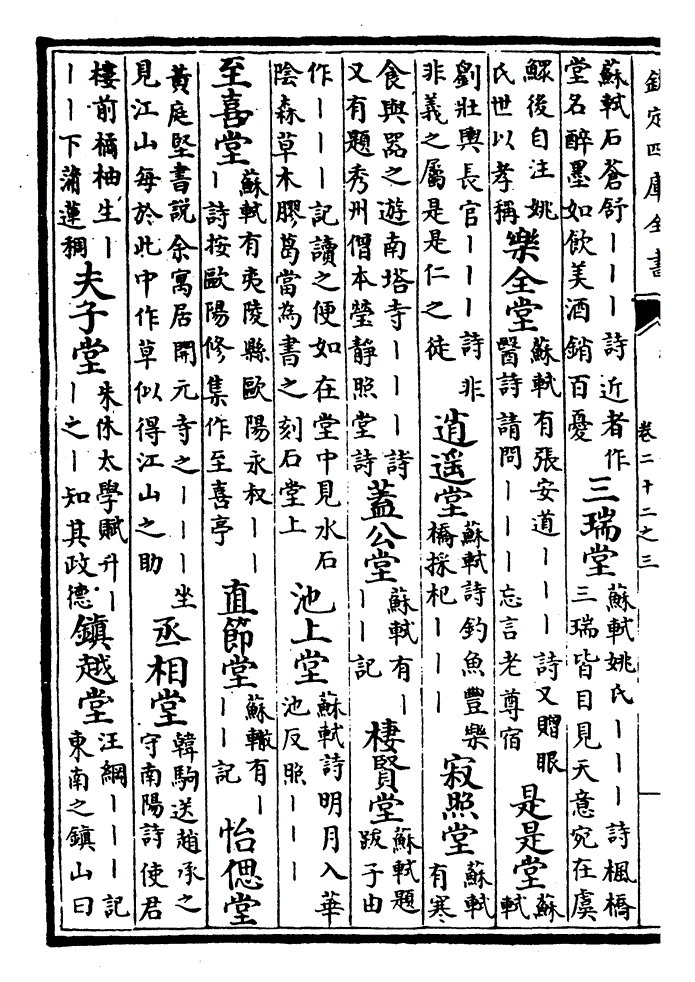 欽定四庫全書
卷二十二之三
蘇軾石蒼舒｜｜｜詩近者作
堂名醉墨如飲美酒銷百憂
三瑞堂
蘇軾姚氏｜｜｜詩楓橋
三瑞皆目見天意宛在虞
鰥後自注姚
氏世以孝稱
樂全堂
蘇軾有張安道｜｜｜詩又贈眼
醫詩請問｜｜｜忘言老尊宿
是是堂
蘇
軾
劉壯輿長官｜｜｜詩非
非義之屬是是仁之徒
逍遥堂
蘇軾詩釣魚豐樂
橋採杞｜｜｜
寂照堂
蘇軾
有寒
食與器之遊南塔寺｜｜｜詩
又有題秀州僧本瑩靜照堂詩
蓋公堂
蘇軾有｜
｜｜記
棲賢堂
蘇軾題
跋子由
作｜｜｜記讀之便如在堂中見水石
陰森草木膠葛當為書之刻石堂上
池上堂
蘇軾詩明月入華
池反照｜｜｜
至喜堂
蘇軾有夷陵縣歐陽永叔｜｜
｜詩按歐陽修集作至喜亭
直節堂
蘇轍有｜
｜｜記
怡偲堂
黃庭堅書說余寓居開元寺之｜｜｜坐
見江山每於此中作草似得江山之助
丞相堂
韓駒送趙承之
守南陽詩使君
樓前橘柚生｜
｜｜下蒲蓮稠
夫子堂
朱休太學賦升｜
｜之｜知其政德
鎮越堂
汪綱｜｜｜記
東南之鎮山曰